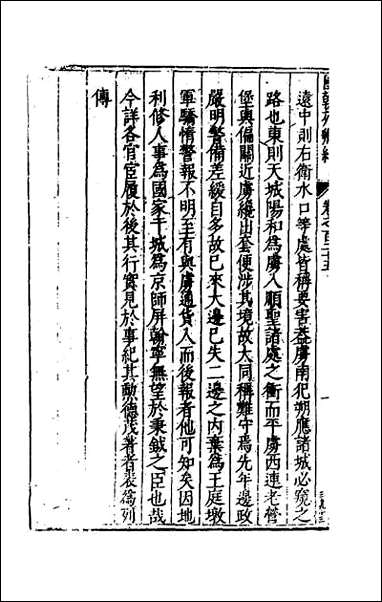 遠中則右衛水口等處皆稱要害葢虜南犯朔應諸城必窺之
路也東則天城陽和為虜人順聖諸處之衝而平虜西連老營
堡與偏關近虜纔出套便涉其境故大同稱難守焉先年邊政
嚴明警備差緩自多故已來大邊已失二邊之内棄為王庭墩
軍驕惰警報不明至有與虜通貨入而後報者他可知矣因地
利修人事為國家干城為京師屏翰寧無望於秉鉞之臣也哉
今詳各官宦履於後其行實見於事紀其勲德茂著者表為列
傳